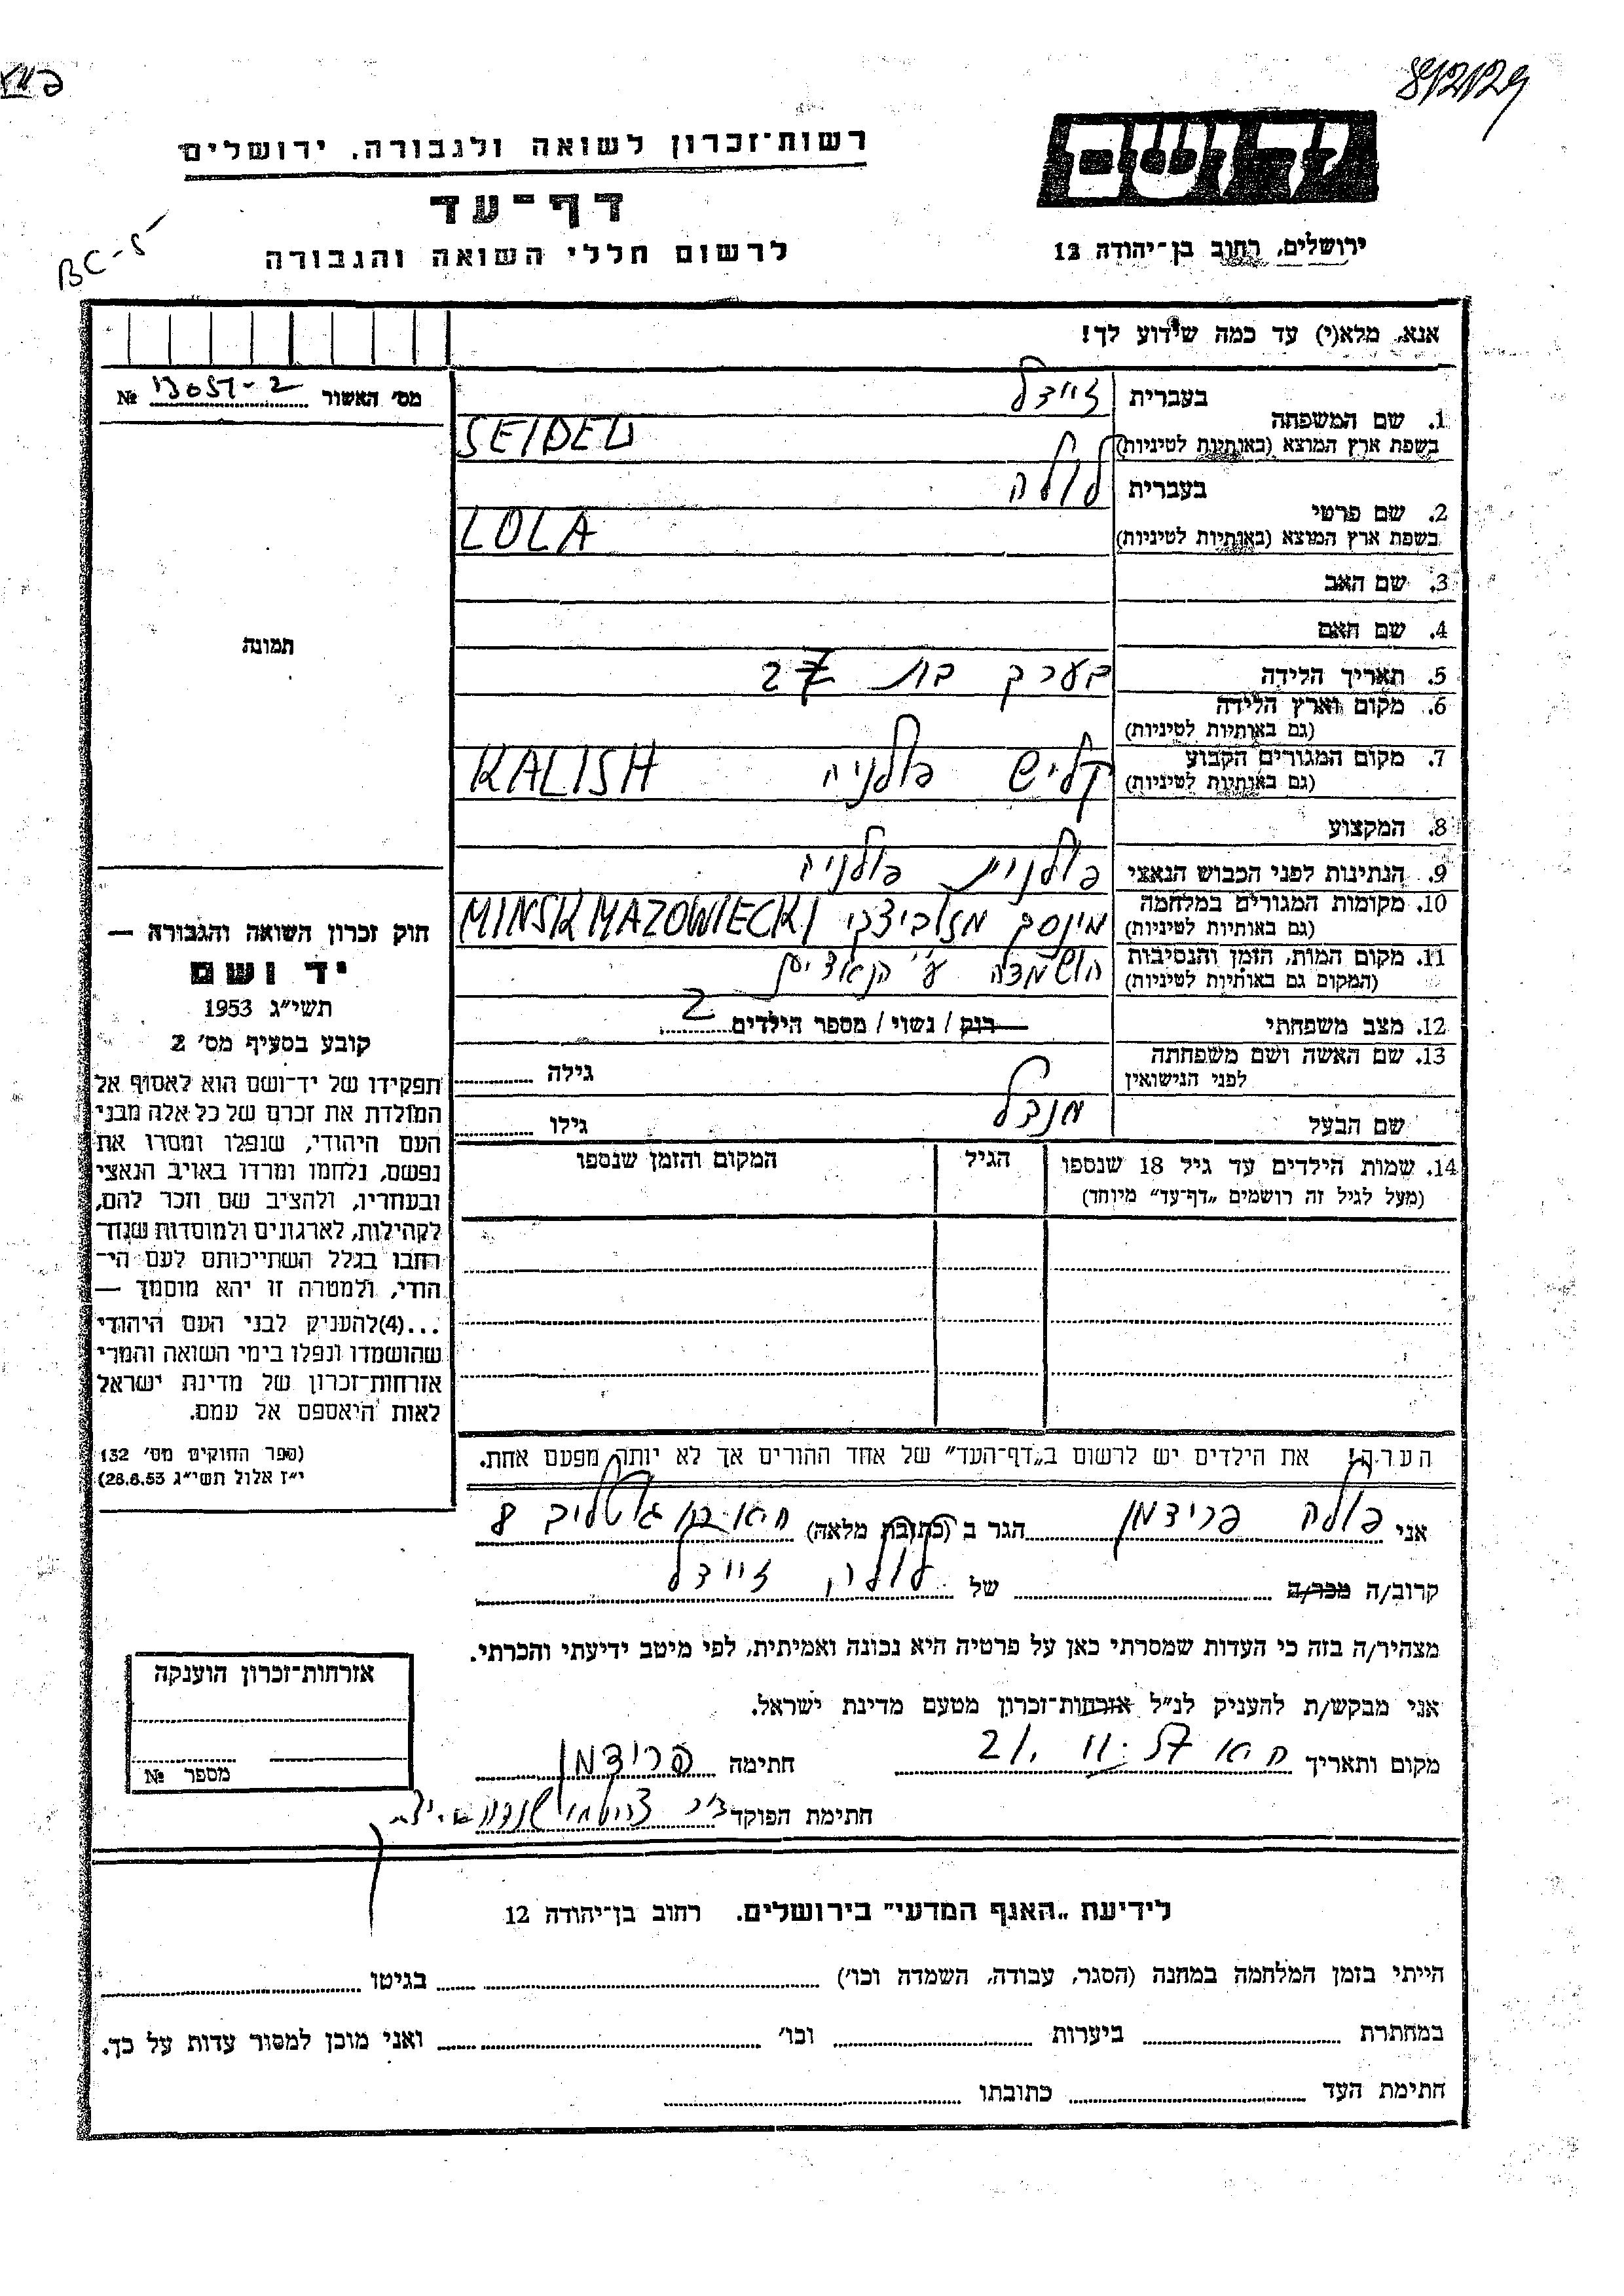 812129
יד ושם
ירושלים, רחוב בן־יהודה 12
רשות־זכרון לשואה ולגבורה, ירושלים
דף־עד
לרשום חללי השואה והגבורה
BC-5
אנא, מלא(י) עד כמה שידוע לך!
מס׳ האשור № 13057-2
1. שם המשפחה
בעברית זיידל
בשפת ארץ המוצא (באותיות לטיניות) SEIDEL
2. שם פרטי
בעברית לולה
בשפת ארץ המוצא (באותיות לטיניות) LOLA
3. שם האב
4. שם האם
5. תאריך הלידה בערך בת 27
6. מקום וארץ הלידה
(גם באותיות לטיניות)
7. מקום המגורים הקבוע קליש פולניה KALISH
(גם באותיות לטיניות)
8. המקצוע
9. הנתינות לפני הכבוש הנאצי פולנית פולניה
10. מקומות המגורים במלחמה מינסק מזוביצקי MINSK MAZOWIECKI
(גם באותיות לטיניות)
11. מקום המות, הזמן והנסיבות הושמדה ע״י הנאצים
(המקום גם באותיות לטיניות)
12. מצב משפחתי רווק / נשוי / מספר הילדים 2
13. שם האשה ושם משפחתה
לפני הנישואין
גילה
שם הבעל מנדל גילו
14. שמות הילדים עד גיל 18 שנספו
(מעל לגיל זה רושמים „דף־עד״ מיוחד)
הגיל
המקום והזמן שנספו
הערה! את הילדים יש לרשום ב„דף־העד״ של אחד ההורים אך לא יותר מפעם אחת.
תמונה
חוק זכרון השואה והגבורה —
יד ושם
תשי״ג 1953
קובע בסעיף מס׳ 2
תפקידו של יד־ושם הוא לאסוף אל
המולדת את זכרם של כל אלה מבני
העם היהודי, שנפלו ומסרו את
נפשם, נלחמו ומרדו באויב הנאצי
ובעוזריו, ולהציב שם וזכר להם,
לקהילות, לארגונים ולמוסדות שנח־
רבו בגלל השתייכותם לעם הי־
הודי, ולמטרה זו יהא מוסמך —
...(4)להעניק לבני העם היהודי
שהושמדו ונפלו בימי השואה והמרי
אזרחות־זכרון של מדינת ישראל
לאות היאספם אל עמם.
(ספר החוקים מס׳ 132
י״ז אלול תשי״ג 28.8.53)
אני פולה פרידמן הגר ב (כתובת מלאה) 8
קרוב/ה מכר/ה של לולה זיידל
מצהיר/ה בזה כי העדות שמסרתי כאן על פרטיה היא נכונה ואמיתית, לפי מיטב ידיעתי והכרתי.
אני מבקש/ת להעניק לנ״ל אזרחות־זכרון מטעם מדינת ישראל.
מקום ותאריך 21. 11. 57 חתימה פרידמן
חתימת הפוקד
אזרחות־זכרון הוענקה
מספר №
לידיעת „האגף המדעי״ בירושלים. רחוב בן־יהודה 12
הייתי בזמן המלחמה במחנה (הסגר, עבודה, השמדה וכו׳) בגיטו
במחתרת ביערות וכו׳ ואני מוכן למסור עדות על כך.
חתימת העד כתובתו